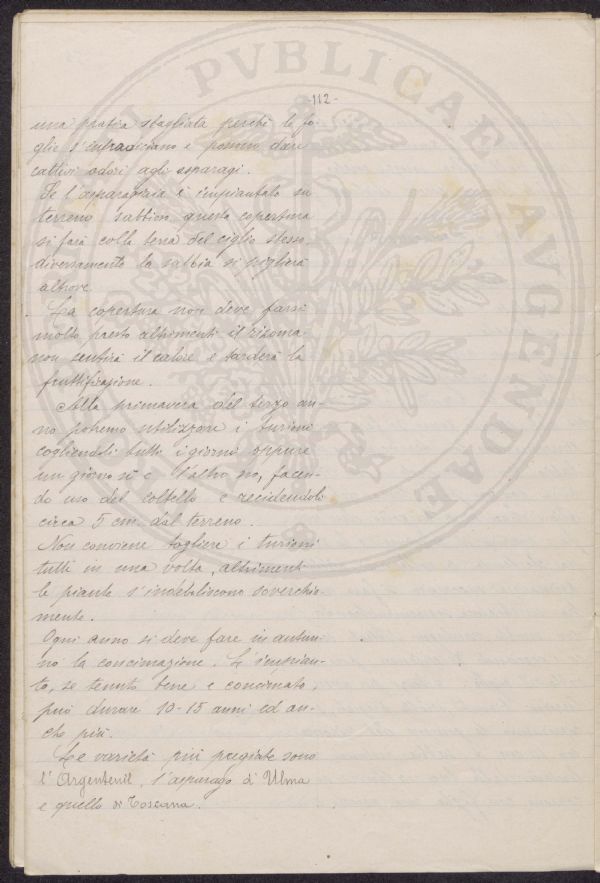 PVBLICAE AVGENDAE
-112-
una pratica sbagliata perchè le fo-
glie s'infradiciano e possono dare
cattivi odori agli asparagi.
Se l'asparagiaia è impiantata su
terreno sabbioso questa copertura
si farà colla terra del ciglio stesso,
diversamente la sabbia si piglierà
altrove.
La copertura non deve farsi
molto presto altrimenti il rizoma
non sentirà il calore e tarderà la
fruttificazione.
Alla primavera del terzo an-
no potremo utilizzare i turioni
cogliendoli tutti i giorni oppure
un giorno sì e l'altro no, facen-
do uso del coltello e recidendoli
circa 5 cm. dal terreno.
Non conviene togliere i turioni
tutti in una volta, altrimenti
le piante s'indeboliscono soverchia-
mente.
Ogni anno si deve fare in autun-
no la concimazione. L'impian-
to, se tenuto bene e concimato,
può durare 10-15 anni ed an-
che più.
Le varietà più pregiate sono
l'Argenteuil, l'asparago d'Ulma
e quello di Toscana.